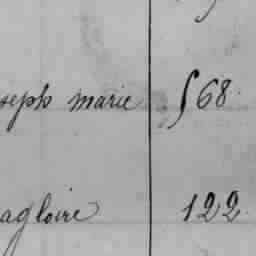 seph marie 568
agloire 122